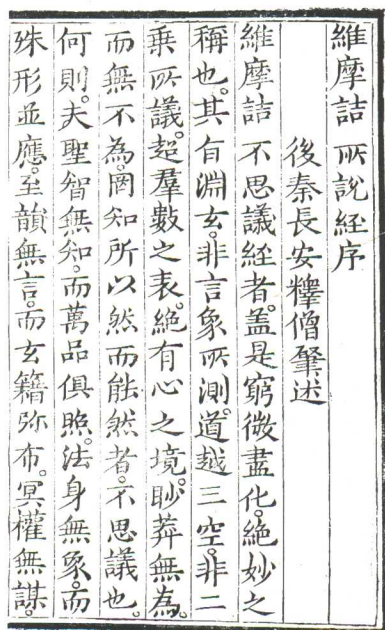 維摩詰所說經序
後秦長安釋僧肇述
維摩詰不思議經者。盖是窮微盡化。絶妙之
稱也。其旨淵玄。非言象所測。道越三空。非二
乗所議。超羣數之表。絶有心之境。眇莽無為。
而無不為。罔知所以然而能然者。不思議也。
何則。夫聖智無知。而萬品俱照。法身無象。而
殊形並應。至韻無言。而玄籍弥布。冥權無謀。